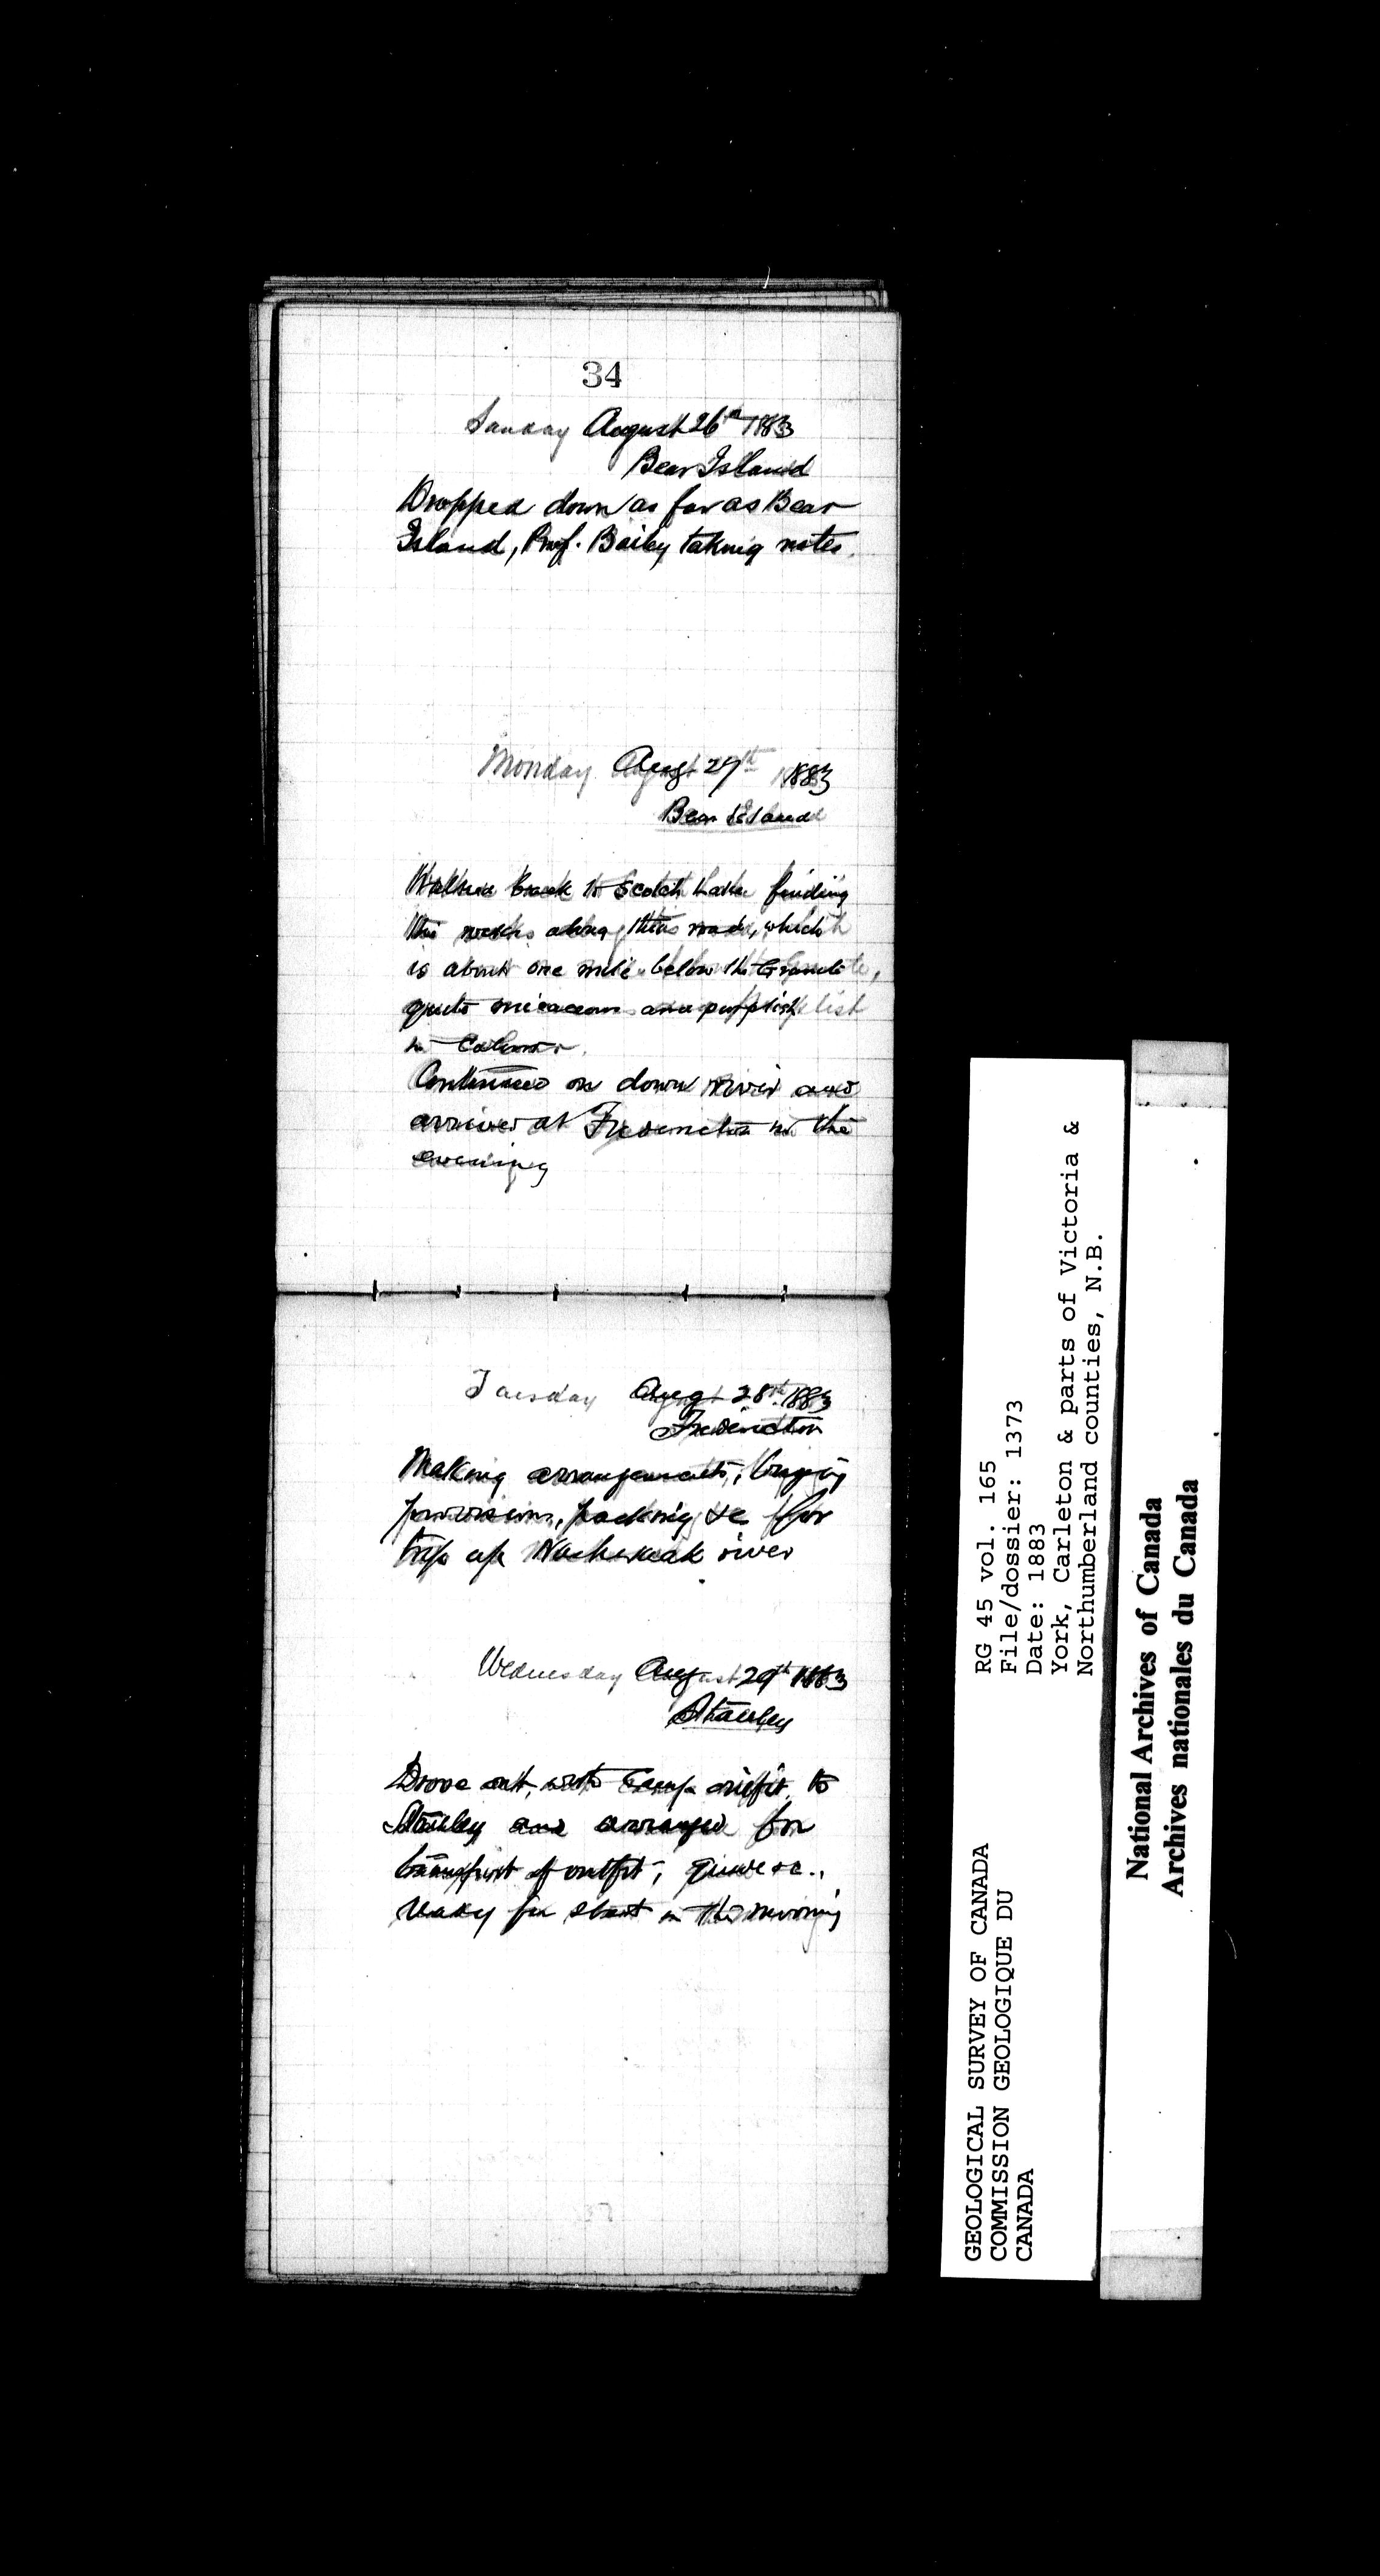 34
Sunday August 26th 1883
Bear Island
Dropped down as far as Bear
Island, Prof. Bailey taking notes.
Monday Augst 27th 1883
Bear Island
Walked back to Scotch Lake finding
the rocks along this road, which
is about one mile below the Granite,
quite micaceous and purplish
in colour.
Continued on down river and
arrived at Fredericton in the
evening
Tuesday Augt 28th 1883
Fredericton
Making arrangements, buying
provisions, packing &c for
trip up Nashwaak river
Wednesday August 29th 1883
Stanley
Drove out with Camp outfit to
Stanley and arranged for
transport of outfit, &c.,
ready for start in the morning
GEOLOGICAL SURVEY OF CANADA
COMMISSION GEOLOGIQUE DU
CANADA
RG 45 vol. 165
File/dossier: 1373
Date: 1883
York, Carleton & parts of Victoria &
Northumberland counties, N.B.
National Archives of Canada
Archives nationales du Canada